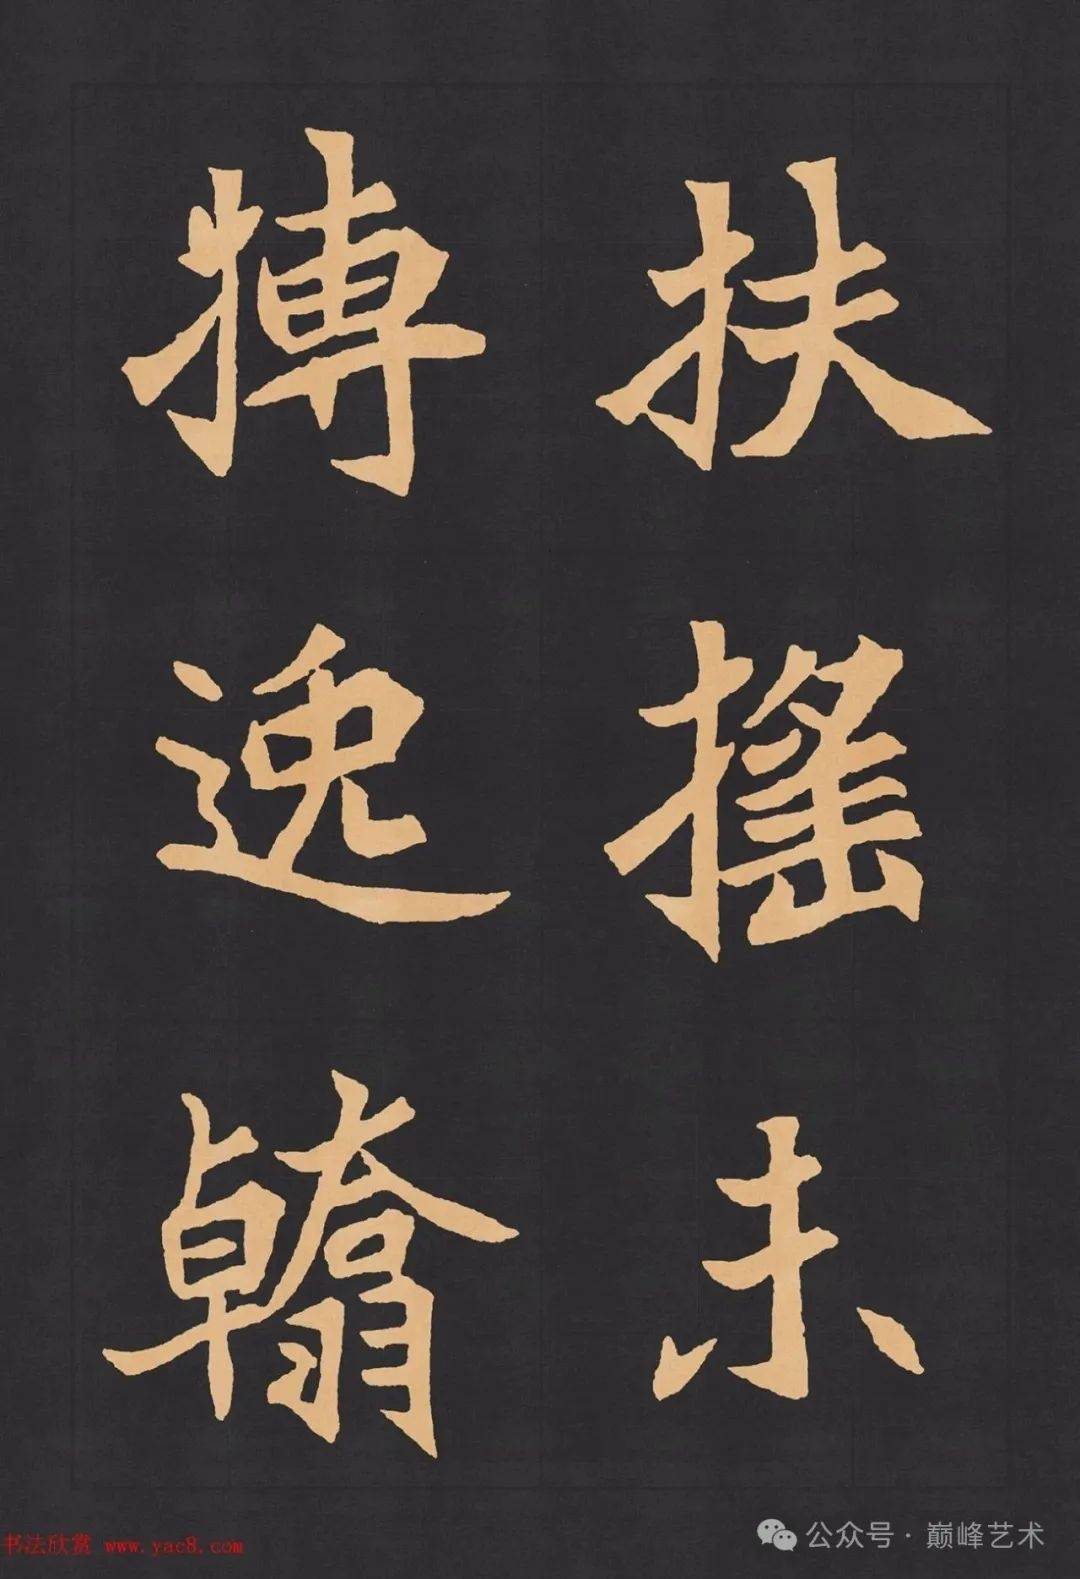 扶摇未
搏逸翰
书法欣赏 www.yac8.com
公众号·巅峰艺术